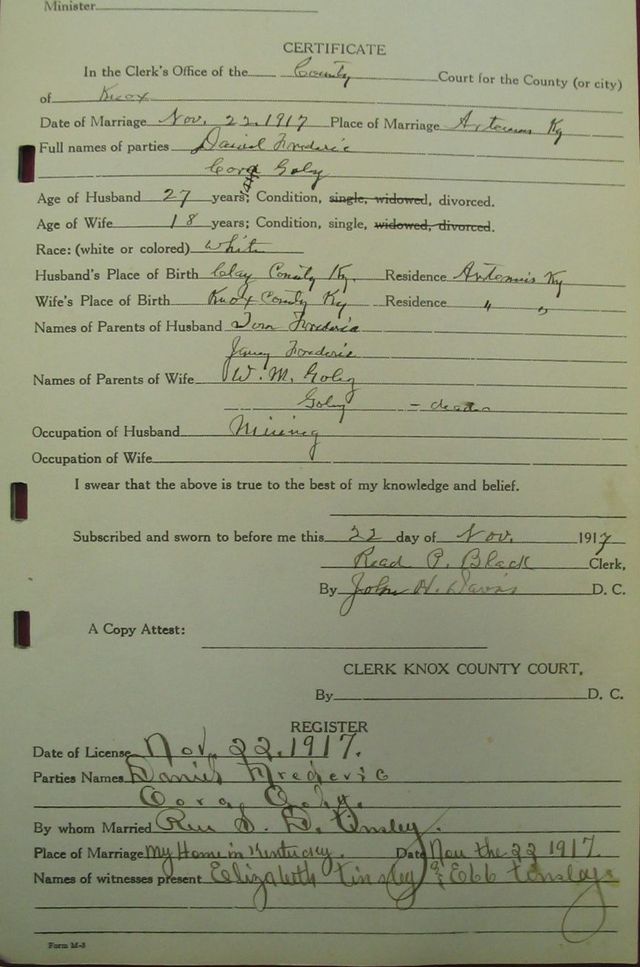 Minister
CERTIFICATE
In the Clerk's Office of the County Court for the County (or city)
of Knox
Date of Marriage Nov. 22, 1917 Place of Marriage Artemus Ky
Full names of parties Daniel Frederic
Cora Goby
Age of Husband 27 years; Condition, single, widowed, divorced.
Age of Wife 18 years; Condition, single, widowed, divorced.
Race: (white or colored) White
Husband's Place of Birth Clay County Ky. Residence Artemus Ky
Wife's Place of Birth Knox County Ky Residence " "
Names of Parents of Husband Tom Frederic
Frederic
Names of Parents of Wife W. M. Goby
Goby -
Occupation of Husband Mining
Occupation of Wife
I swear that the above is true to the best of my knowledge and belief.
Subscribed and sworn to before me this 22 day of Nov. 1917
Read P. Black Clerk,
By John H. Davis D. C.
A Copy Attest:
CLERK KNOX COUNTY COURT,
By D. C.
REGISTER
Date of License Nov. 22, 1917.
Parties Names Daniel Frederic
Cora Goby.
By whom Married Rev S. D. Tinsley.
Place of Marriage My Home in Kentucky. Date Nov the 22 1917.
Names of witnesses present Elizabeth Tinsley & Ebb Tinsley
Form M-3